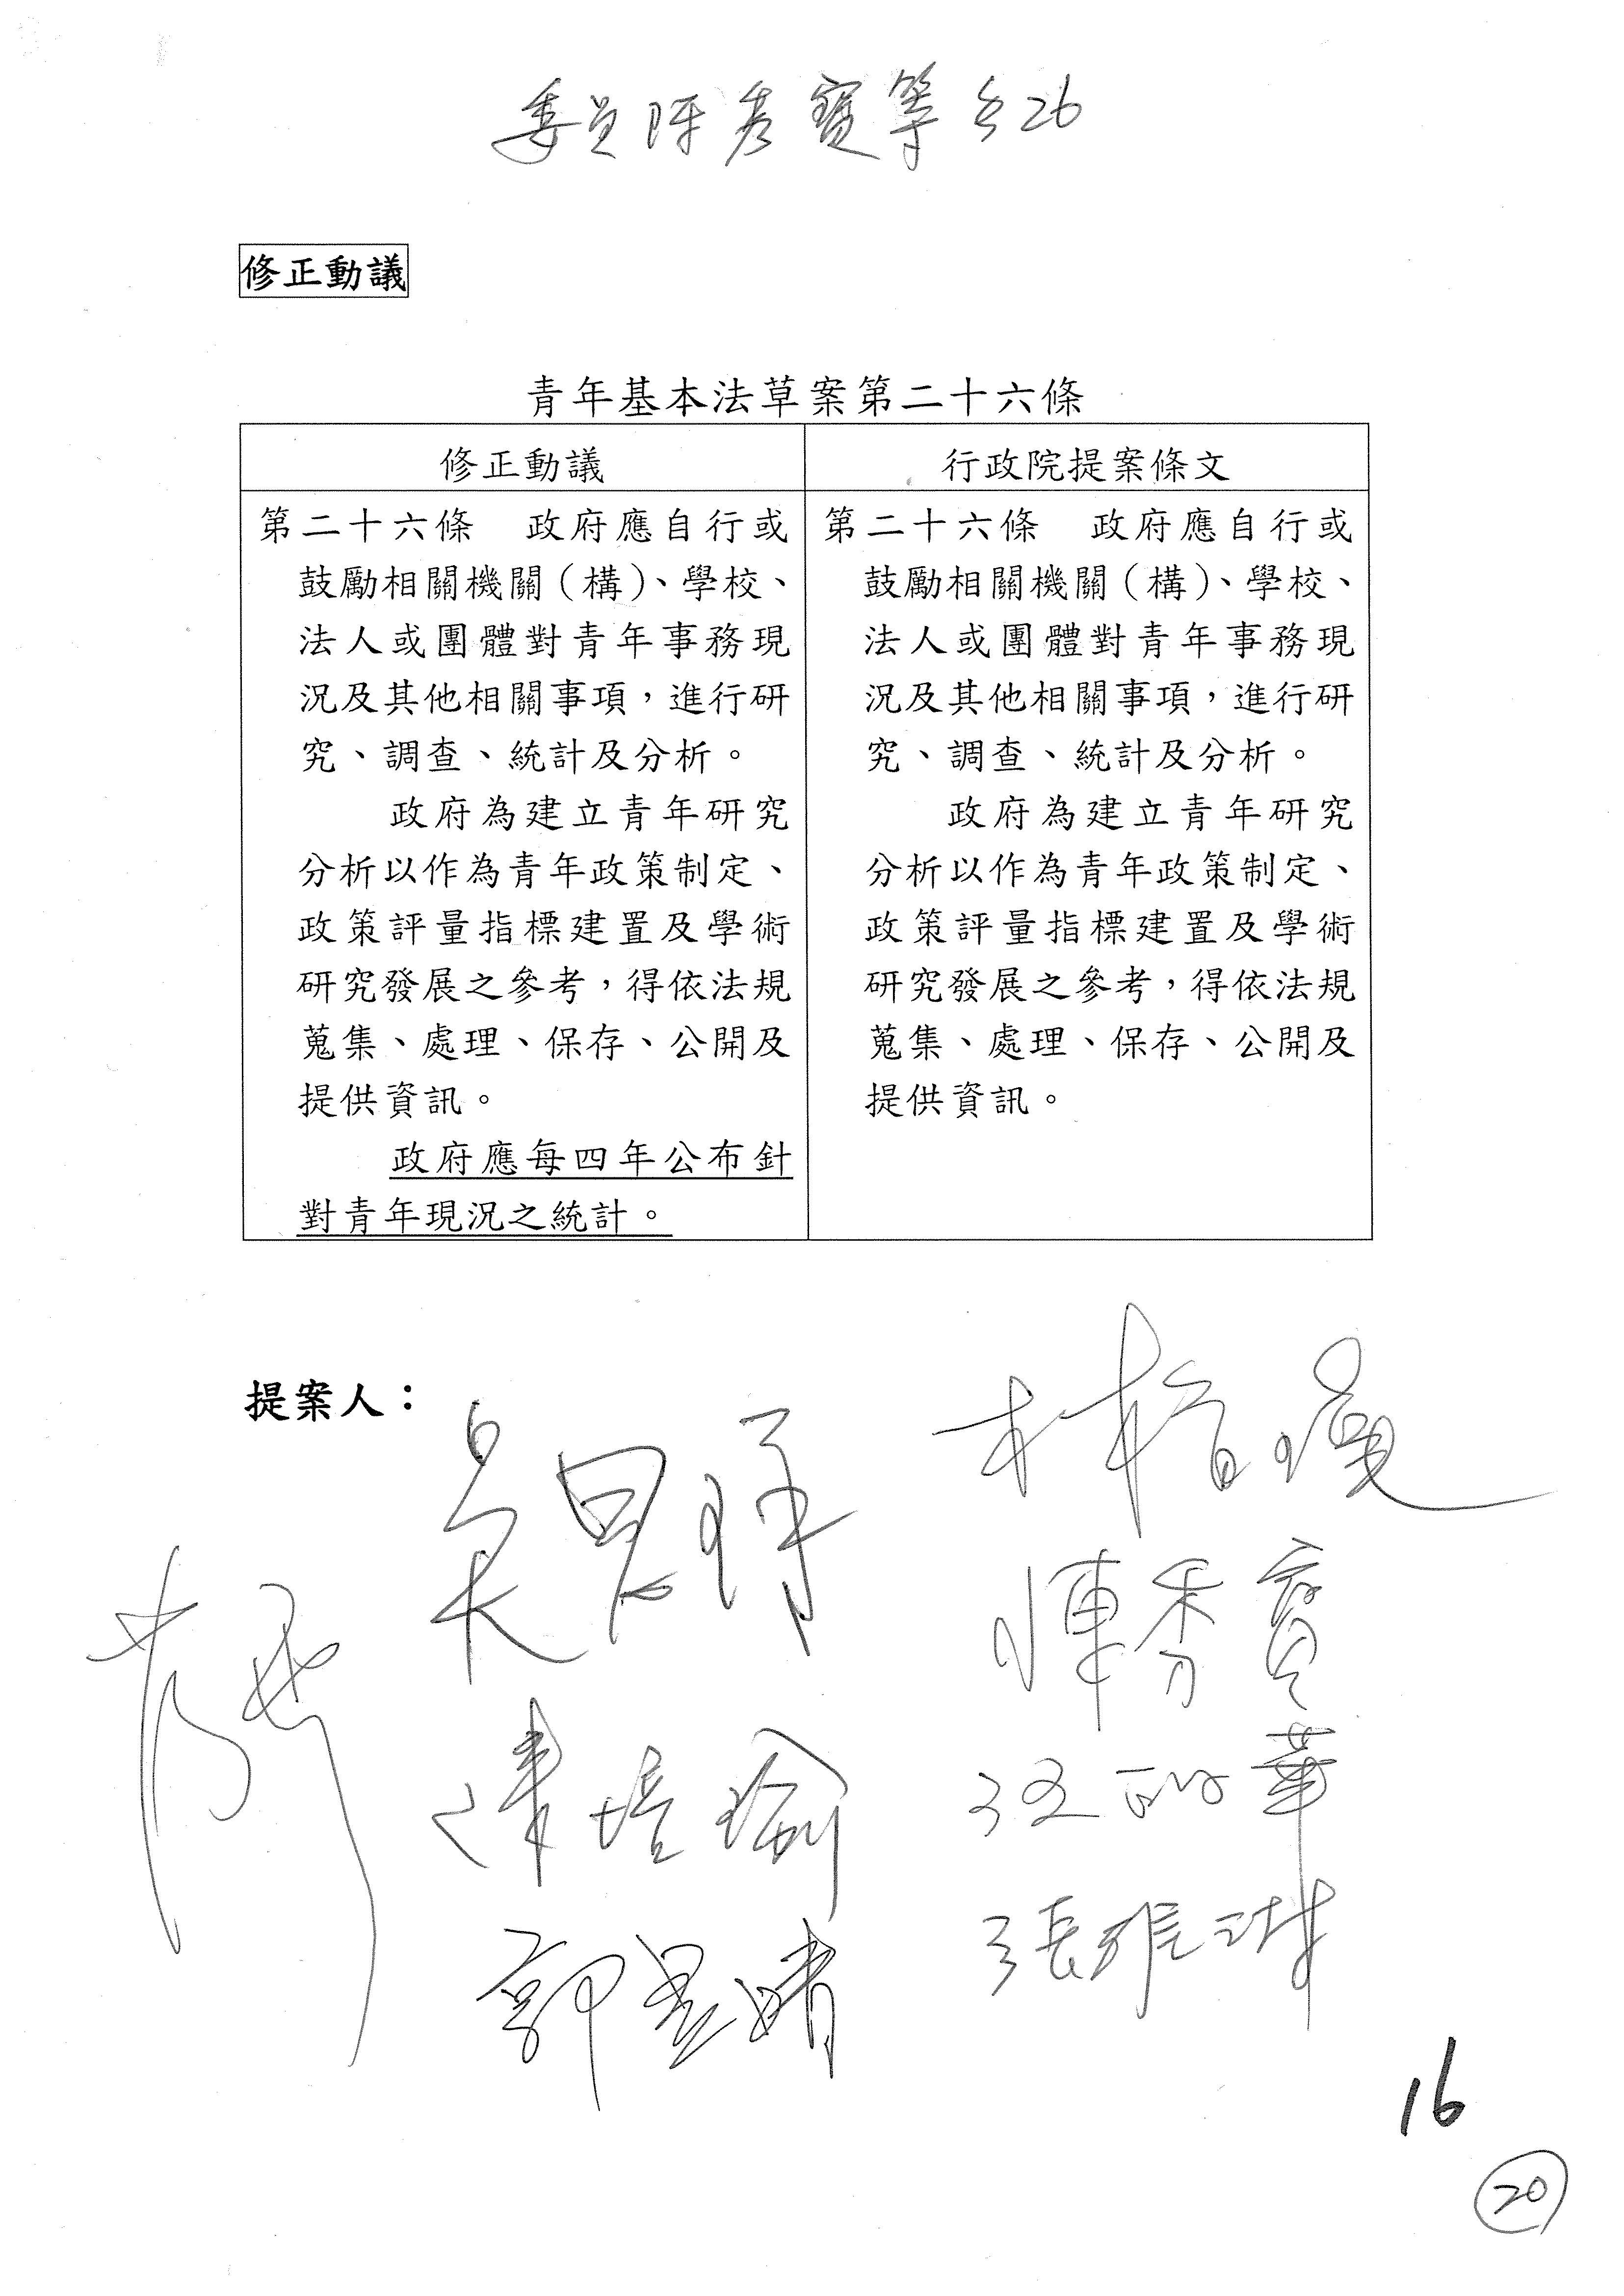 委員陳秀寶等 26
修正動議
青年基本法草案第二十六條
修正動議
行政院提案條文
第二十六條　政府應自行或
鼓勵相關機關（構）、學校、
法人或團體對青年事務現
況及其他相關事項，進行研
究、調查、統計及分析。
政府為建立青年研究
分析以作為青年政策制定、
政策評量指標建置及學術
研究發展之參考，得依法規
蒐集、處理、保存、公開及
提供資訊。
政府應每四年公布針
對青年現況之統計。
第二十六條　政府應自行或
鼓勵相關機關（構）、學校、
法人或團體對青年事務現
況及其他相關事項，進行研
究、調查、統計及分析。
政府為建立青年研究
分析以作為青年政策制定、
政策評量指標建置及學術
研究發展之參考，得依法規
蒐集、處理、保存、公開及
提供資訊。
提案人：
吳思瑤
林楚茵
陳秀寶
陳培瑜
范雲
郭昱晴
張雅琳
16
20